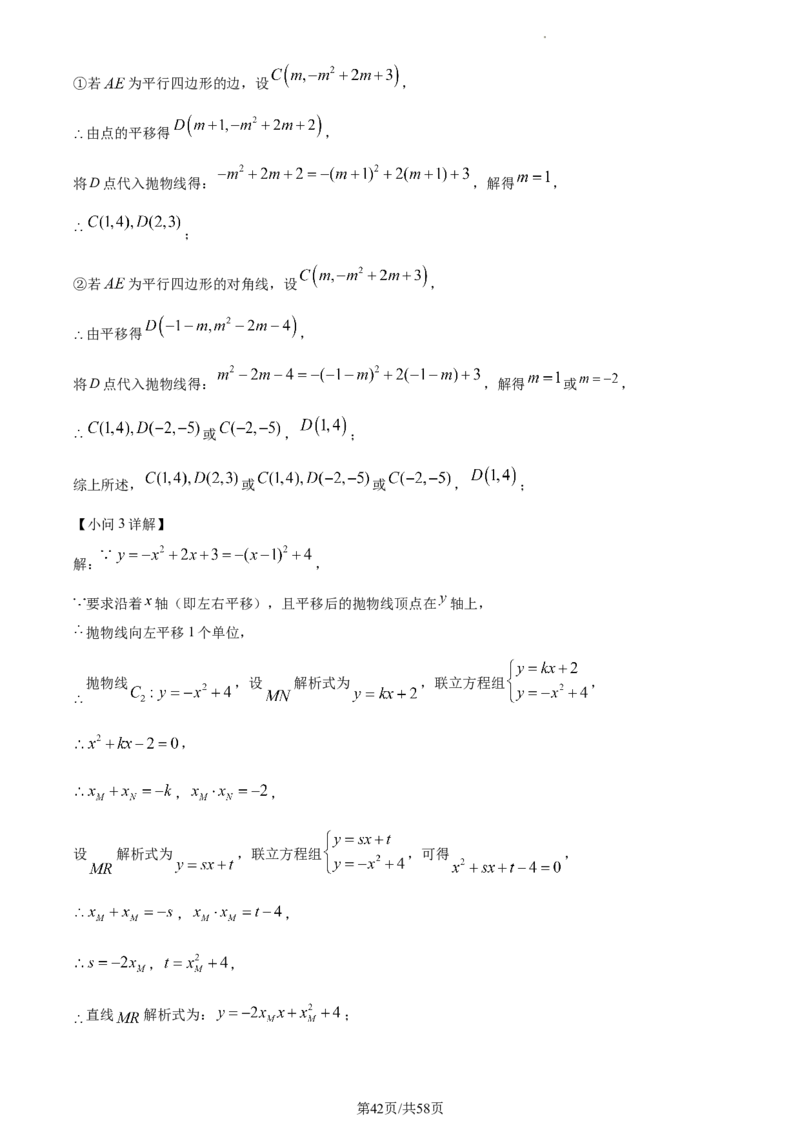 ①若AE为平行四边形的边，设C(m,−m²+2m+3)，
∴由点的平移得D(m+1,−m²+2m+2)，
将D点代入抛物线得：−m²+2m+2=−(m+1)²+2(m+1)+3，解得m=1，
∴C(1,4),D(2,3)；
②若AE为平行四边形的对角线，设C(m,−m²+2m+3)，
∴由平移得D(−1−m,m²−2m−4)，
将D点代入抛物线得：m²−2m−4=−(−1−m)²+2(−1−m)+3，解得m=1或m=−2，
∴C(1,4),D(−2,−5)或C(−2,−5)，D(1,4)；
综上所述，C(1,4),D(2,3)或C(1,4),D(−2,−5)或C(−2,−5)，D(1,4)；
【小问3详解】
解：∵y=−x²+2x+3=−(x−1)²+4，
∵要求沿着x轴（即左右平移），且平移后的抛物线顶点在y轴上，
∴抛物线向左平移1个单位，
∴抛物线C₂:y=−x²+4，设MN解析式为y=kx+2，联立方程组{y=kx+2 y=−x²+4，
∴x²+kx−2=0，
∴x_M+x_N=−k，x_M·x_N=−2，
设MR解析式为y=sx+t，联立方程组{y=sx+t y=−x²+4，可得x²+sx+t−4=0，
∴x_M+x_M=−s，x_M·x_M=t−4，
∴s=−2x_M，t=x_M²+4，
∴直线MR解析式为：y=−2x_M x+x_M²+4；
第42页/共58页